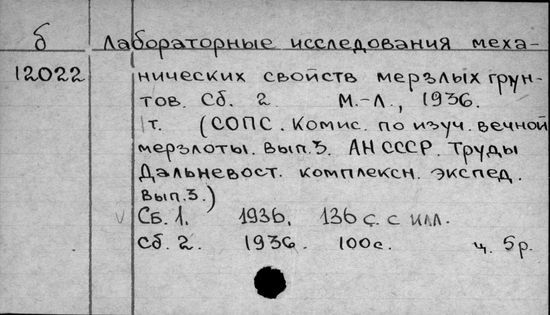 б Лабораторные исследования меха-
12022 нических свойств мерзлых грун-
тов. Сб. 2. М.-Л., 1936.
1т. (СОПС. Комис. по изуч. вечной
мерзлоты. Вып.3. АН СССР. Труды
Дальневост. комплексн. экспед.
Вып.3.)
√ Сб. 1. 1936. 136 с. с илл.
Сб. 2. 1936. 100с. ц. 5р.